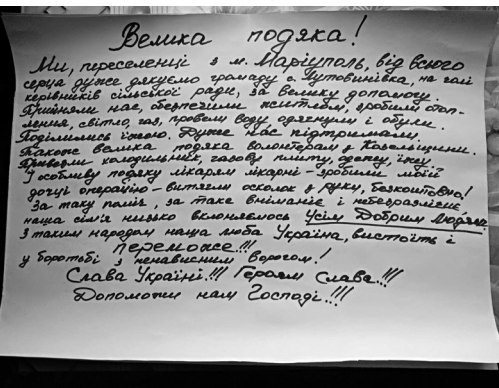 Велика подяка!
Ми, переселенці з м. Маріуполь, від всього
серця дуже дякуємо громаду с. Путовинівка, на чалі
керівників сільської ради, за велику допомогу.
Прийняли нас, обезпечили житлом, зробили отоп-
лення, світло, газ, провели воду одягнули і обули.
Поділились їжою. Дуже нас підтримали.
Також велика подяка волонтерам з Козельщини.
Привезли холодильник, газову плиту, одежу, їжу.
І особливу подяку лікарям лікарні - зробили моїй
дочці операцію - витягли осколок з руки, безкоштовно!
За таку поміч, за таке вніманіє і небезразлічіє
наша сім'я низько вклоняємось Усім Добрим Людям.
З таким народом наша люба Україна, вистоїть і
переможе!!!
у боротьбі з ненависним ворогом!
Слава Україні!!! Героям Слава!!!
Допоможи нам Господі!!!